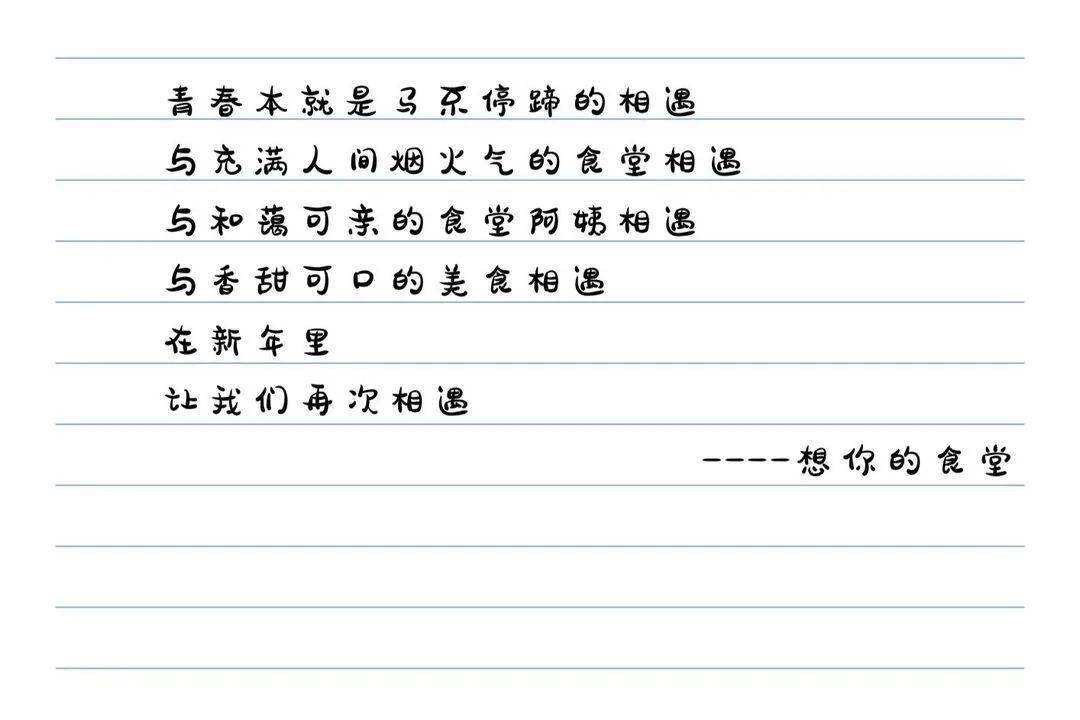 青春本就是马不停蹄的相遇
与充满人间烟火气的食堂相遇
与和蔼可亲的食堂阿姨相遇
与香甜可口的美食相遇
在新年里
让我们再次相遇
----想你的食堂